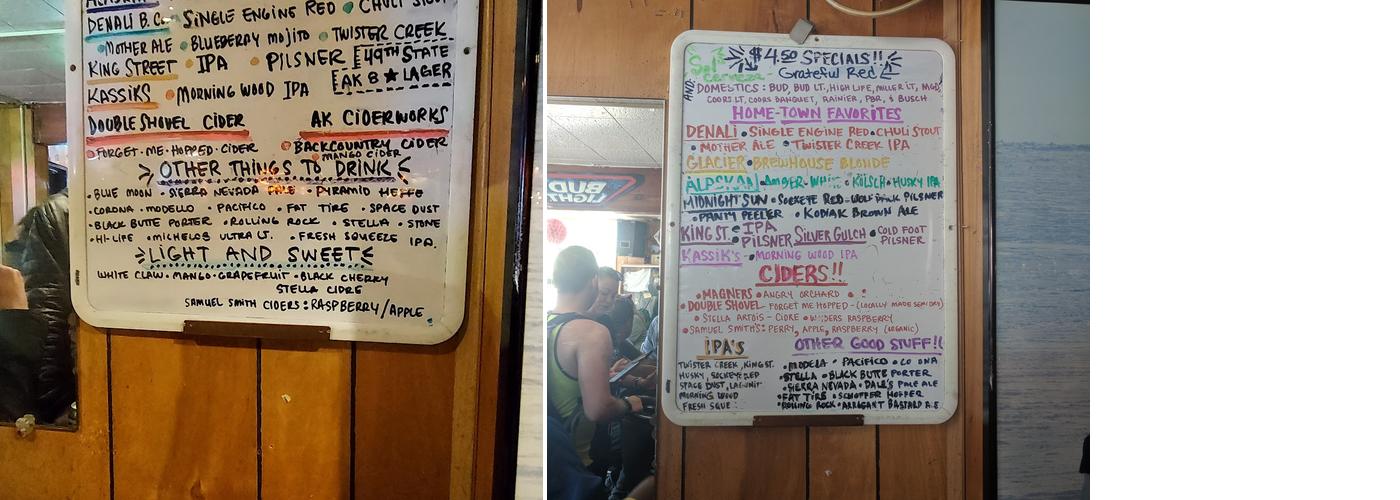 DENALI B.C. SINGLE ENGINE RED • CHULI STOUT
• MOTHER ALE • BLUEBERRY MOJITO • TWISTER CREEK
KING STREET • IPA • PILSNER 49TH STATE
KASSIKS • MORNING WOOD IPA AK B★LAGER
DOUBLE SHOVEL CIDER AK CIDERWORKS
• FORGET·ME·HOPPED·CIDER • BACKCOUNTRY CIDER
• MANGO CIDER
OTHER THINGS TO DRINK
• BLUE MOON • SIERRA NEVADA PALE • PYRAMID HEFFE
• CORONA • MODELLO • PACIFICO • FAT TIRE • SPACE DUST
• BLACK BUTTE PORTER • ROLLING ROCK • STELLA • STONE
• HI-LIFE • MICHELOB ULTRA LT. • FRESH SQUEEZE IPA.
LIGHT AND SWEET
WHITE CLAW • MANGO • GRAPEFRUIT • BLACK CHERRY
STELLA CIDRE
SAMUEL SMITH CIDERS: RASPBERRY/APPLE
$4.50 SPECIALS!!
Sol
Cerveza - Grateful Red
AND: DOMESTICS: BUD, BUD LT, HIGH LIFE, MILLER LT, MGD,
COORS LT, COORS BANQUET, RAINIER, PBR, & BUSCH
HOME-TOWN FAVORITES
DENALI • SINGLE ENGINE RED • CHULI STOUT
• MOTHER ALE • TWISTER CREEK IPA
GLACIER • BREWHOUSE BLONDE
ALASKAN • AMBER • WHITE • KÖLSCH • HUSKY IPA
MIDNIGHT SUN • SOCKEYE RED • WOLF PACK PILSNER
• PANTY PEELER • KODIAK BROWN ALE
KING ST. • IPA
• PILSNER SILVER GULCH • COLD FOOT PILSNER
KASSIK'S • MORNING WOOD IPA
CIDERS!!
• MAGNERS • ANGRY ORCHARD
• DOUBLE SHOVEL - FORGET ME HOPPED - (LOCALLY MADE SEMI DRY)
• STELLA ARTOIS - CIDRE • RASPBERRY
• SAMUEL SMITH'S: PERRY, APPLE, RASPBERRY (ORGANIC)
IPA'S
TWISTER CREEK, KING ST.
HUSKY, SOCKEYE RED
SPACE DUST,
MORNING WOOD
FRESH
OTHER GOOD STUFF!!
• MODELA • PACIFICO
• STELLA • BLACK BUTTE PORTER
• SIERRA NEVADA • DALE'S PALE ALE
• FAT TIRE • SCHOFFER HOFFER
• ROLLING ROCK • ARROGANT BASTARD
BUD
LIGHT